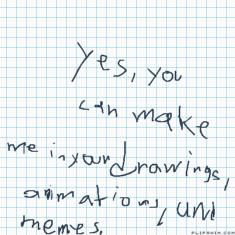 yes, you
can make
me in your drawings,
animations, and
memes.
FLIPANIM.COM